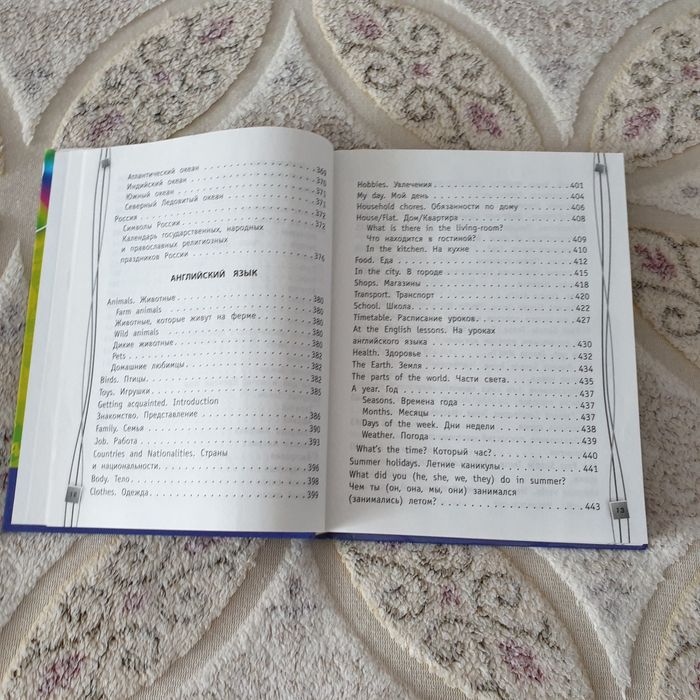 Атлантический океан . . . . . . . . . . . . . . . . . 369
Индийский океан . . . . . . . . . . . . . . . . . . 370
Южный океан . . . . . . . . . . . . . . . . . . . . 371
Северный Ледовитый океан . . . . . . . . . . . . . 371
Россия . . . . . . . . . . . . . . . . . . . . . . . . 372
Символы России . . . . . . . . . . . . . . . . . . . 372
Календарь государственных, народных
и православных религиозных
праздников России . . . . . . . . . . . . . . . . . 376
АНГЛИЙСКИЙ ЯЗЫК
Animals. Животные . . . . . . . . . . . . . . . . . . 380
Farm animals . . . . . . . . . . . . . . . . . . . . 380
Животные, которые живут на ферме . . . . . . . . 380
Wild animals . . . . . . . . . . . . . . . . . . . . 380
Дикие животные . . . . . . . . . . . . . . . . . . . 380
Pets . . . . . . . . . . . . . . . . . . . . . . . . . 382
Домашние любимцы . . . . . . . . . . . . . . . . . 382
Birds. Птицы . . . . . . . . . . . . . . . . . . . . . 382
Toys. Игрушки . . . . . . . . . . . . . . . . . . . . 385
Getting acquainted. Introduction
Знакомство. Представление . . . . . . . . . . . . . 386
Family. Семья . . . . . . . . . . . . . . . . . . . . 390
Job. Работа . . . . . . . . . . . . . . . . . . . . . 393
Countries and Nationalities. Страны
и национальности. . . . . . . . . . . . . . . . . . . 396
Body. Тело . . . . . . . . . . . . . . . . . . . . . . 398
Clothes. Одежда . . . . . . . . . . . . . . . . . . . 399
12
Hobbies. Увлечения . . . . . . . . . . . . . . . . . 401
My day. Мой день . . . . . . . . . . . . . . . . . . 404
Household chores. Обязанности по дому . . . . . . 406
House/Flat. Дом/Квартира . . . . . . . . . . . . . . 408
What is there in the living-room?
Что находится в гостиной? . . . . . . . . . . . . . 409
In the kitchen. На кухне . . . . . . . . . . . . . . 410
Food. Еда . . . . . . . . . . . . . . . . . . . . . . 412
In the city. В городе . . . . . . . . . . . . . . . . 415
Shops. Магазины . . . . . . . . . . . . . . . . . . 418
Transport. Транспорт . . . . . . . . . . . . . . . . 420
School. Школа. . . . . . . . . . . . . . . . . . . . 422
Timetable. Расписание уроков. . . . . . . . . . . . 427
At the English lessons. На уроках
английского языка . . . . . . . . . . . . . . . . . . 430
Health. Здоровье . . . . . . . . . . . . . . . . . . 432
The Earth. Земля . . . . . . . . . . . . . . . . . . 434
The parts of the world. Части света. . . . . . . . . 435
A year. Год . . . . . . . . . . . . . . . . . . . . . 437
Seasons. Времена года . . . . . . . . . . . . . . . 437
Months. Месяцы . . . . . . . . . . . . . . . . . . . 437
Days of the week. Дни недели . . . . . . . . . . . 438
Weather. Погода . . . . . . . . . . . . . . . . . . 439
What's the time? Который час? . . . . . . . . . . . 440
Summer holidays. Летние каникулы . . . . . . . . . 441
What did you (he, she, we, they) do in summer?
Чем ты (он, она, мы, они) занимался
(занимались) летом? . . . . . . . . . . . . . . . . . 443
13